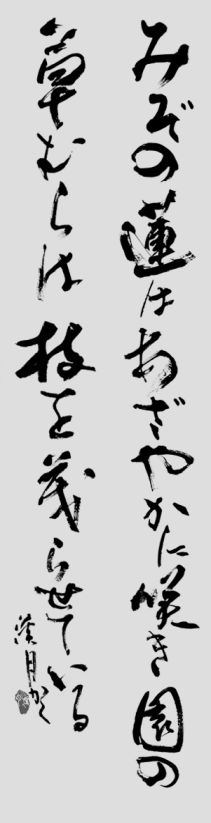 みぞの蓮はあざやかに咲き園の
草むらは枝を茂らせている
月かく